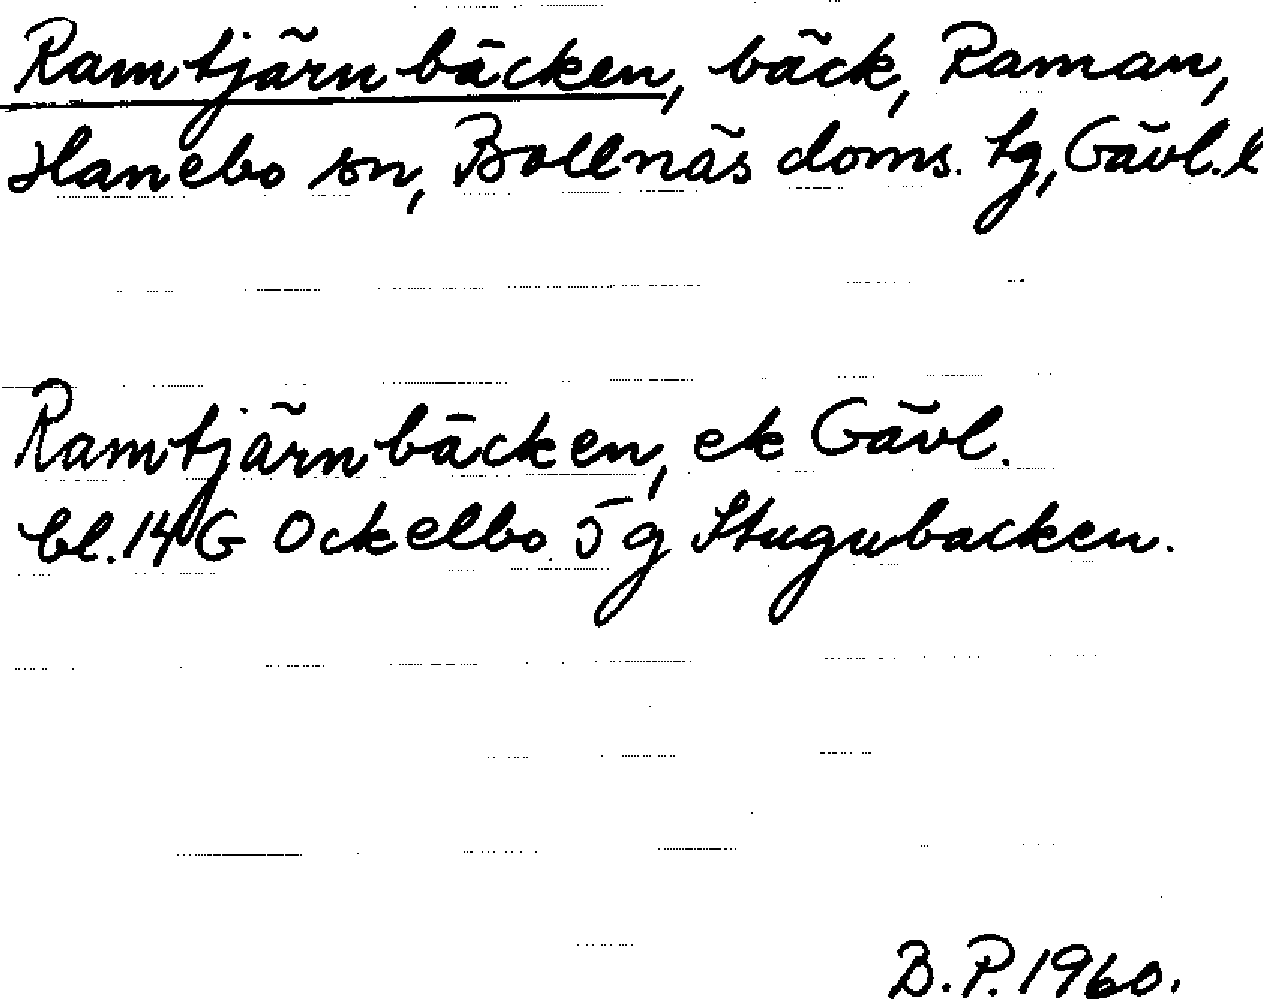 Ramtjärnbäcken, bäck, Raman,
Hanebo sn, Bollnäs doms. tg, Gävl. l
Ramtjärnbäcken, ek Gävl.
bl. 14 G Ockelbo 5 g Stugubacken.
B.P. 1960.